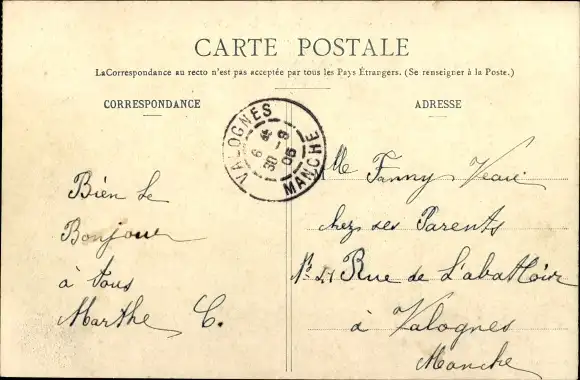 CARTE POSTALE
La Correspondance au recto n'est pas acceptée par tous les Pays Étrangers. (Se renseigner à la Poste.)
CORRESPONDANCE
ADRESSE
VALOGNES
6 30 -9 06
MANCHE
Bien le
Bonjour
à tous
Marthe C.
Fanny
chez ses Parents
Rue de L'abattoire
à Valognes
Manche